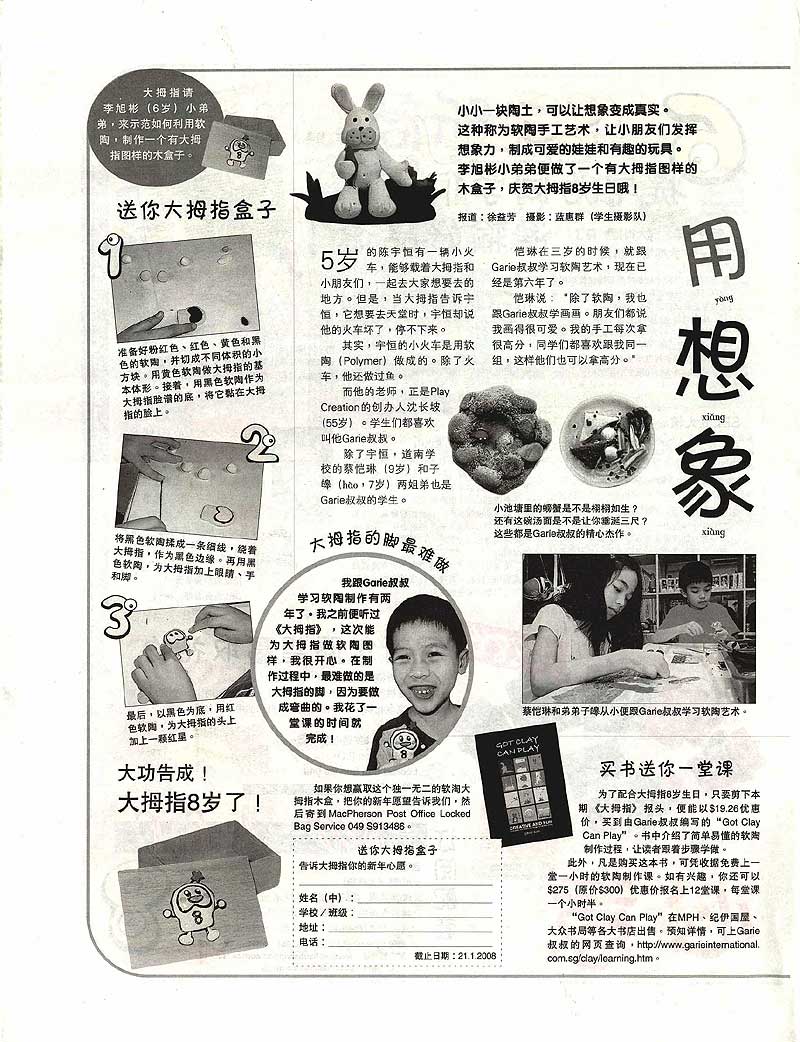 大拇指请
李旭彬（6岁）小弟
弟，来示范如何利用软
陶，制作一个有大拇
指图样的木盒子。
小小一块陶土，可以让想象变成真实。
这种称为软陶手工艺术，让小朋友们发挥
想象力，制成可爱的娃娃和有趣的玩具。
李旭彬小弟弟便做了一个有大拇指图样的
木盒子，庆贺大拇指8岁生日哦！
报道：徐益芳 摄影：蓝惠群（学生摄影队）
用
yòng
想
xiǎng
象
xiàng
送你大拇指盒子
1
准备好粉红色、红色、黄色和黑
色的软陶，并切成不同体积的小
方块。用黄色软陶做大拇指的基
本体形。接着，用黑色软陶作为
大拇指脸谱的底，将它黏在大拇
指的脸上。
2
将黑色软陶揉成一条细线，绕着
大拇指，作为黑色边缘。再用黑
色软陶，为大拇指加上眼睛、手
和脚。
3
最后，以黑色为底，用红
色软陶，为大拇指的头上
加上一颗红星。
大功告成！
大拇指8岁了！
5岁的陈宇恒有一辆小火
车，能够载着大拇指和
小朋友们，一起去大家想要去的
地方。但是，当大拇指告诉宇
恒，它想要去天堂时，宇恒却说
他的火车坏了，停不下来。
其实，宇恒的小火车是用软
陶（Polymer）做成的。除了火
车，他还做过鱼。
而他的老师，正是Play
Creation的创办人沈长坡
（55岁）。学生们都喜欢
叫他Garie叔叔。
除了宇恒，道南学
校的蔡恺琳（9岁）和子
皞（hào，7岁）两姐弟也是
Garie叔叔的学生。
恺琳在三岁的时候，就跟
Garie叔叔学习软陶艺术，现在已
经是第六年了。
恺琳说：“除了软陶，我也
跟Garie叔叔学画画。朋友们都说
我画得很可爱。我的手工每次拿
很高分，同学们都喜欢跟我同一
组，这样他们也可以拿高分。”
小池塘里的螃蟹是不是栩栩如生？
还有这碗汤面是不是让你垂涎三尺？
这些都是Garie叔叔的精心杰作。
大拇指的脚最难做
我跟Garie叔叔
学习软陶制作有两
年了。我之前便听过
《大拇指》，这次能
为大拇指做软陶图
样，我很开心。在制
作过程中，最难做的是
大拇指的脚，因为要做
成弯曲的。我花了一
堂课的时间就
完成！
蔡恺琳和弟弟子皞从小便跟Garie叔叔学习软陶艺术。
如果你想赢取这个独一无二的软淘大
拇指木盒，把你的新年愿望告诉我们，然
后寄到MacPherson Post Office Locked
Bag Service 049 S913486。
送你大拇指盒子
告诉大拇指你的新年心愿。
姓名（中）：
学校／班级：
地址：
电话：
截止日期：21.1.2008
GOT CLAY
CAN PLAY
CREATIVE AND FUN
买书送你一堂课
为了配合大拇指8岁生日，只要剪下本
期《大拇指》报头，便能以$19.26优惠
价，买到由Garie叔叔编写的“Got Clay
Can Play”。书中介绍了简单易懂的软陶
制作过程，让读者跟着步骤学做。
此外，凡是购买这本书，可凭收据免费上一
堂一小时的软陶制作课。如有兴趣，你还可以
$275（原价$300）优惠价报名上12堂课，每堂课
一个小时半。
“Got Clay Can Play”在MPH、纪伊国屋、
大众书局等各大书店出售。预知详情，可上Garie
叔叔的网页查询，http://www.garieinternational.
com.sg/clay/learning.htm。